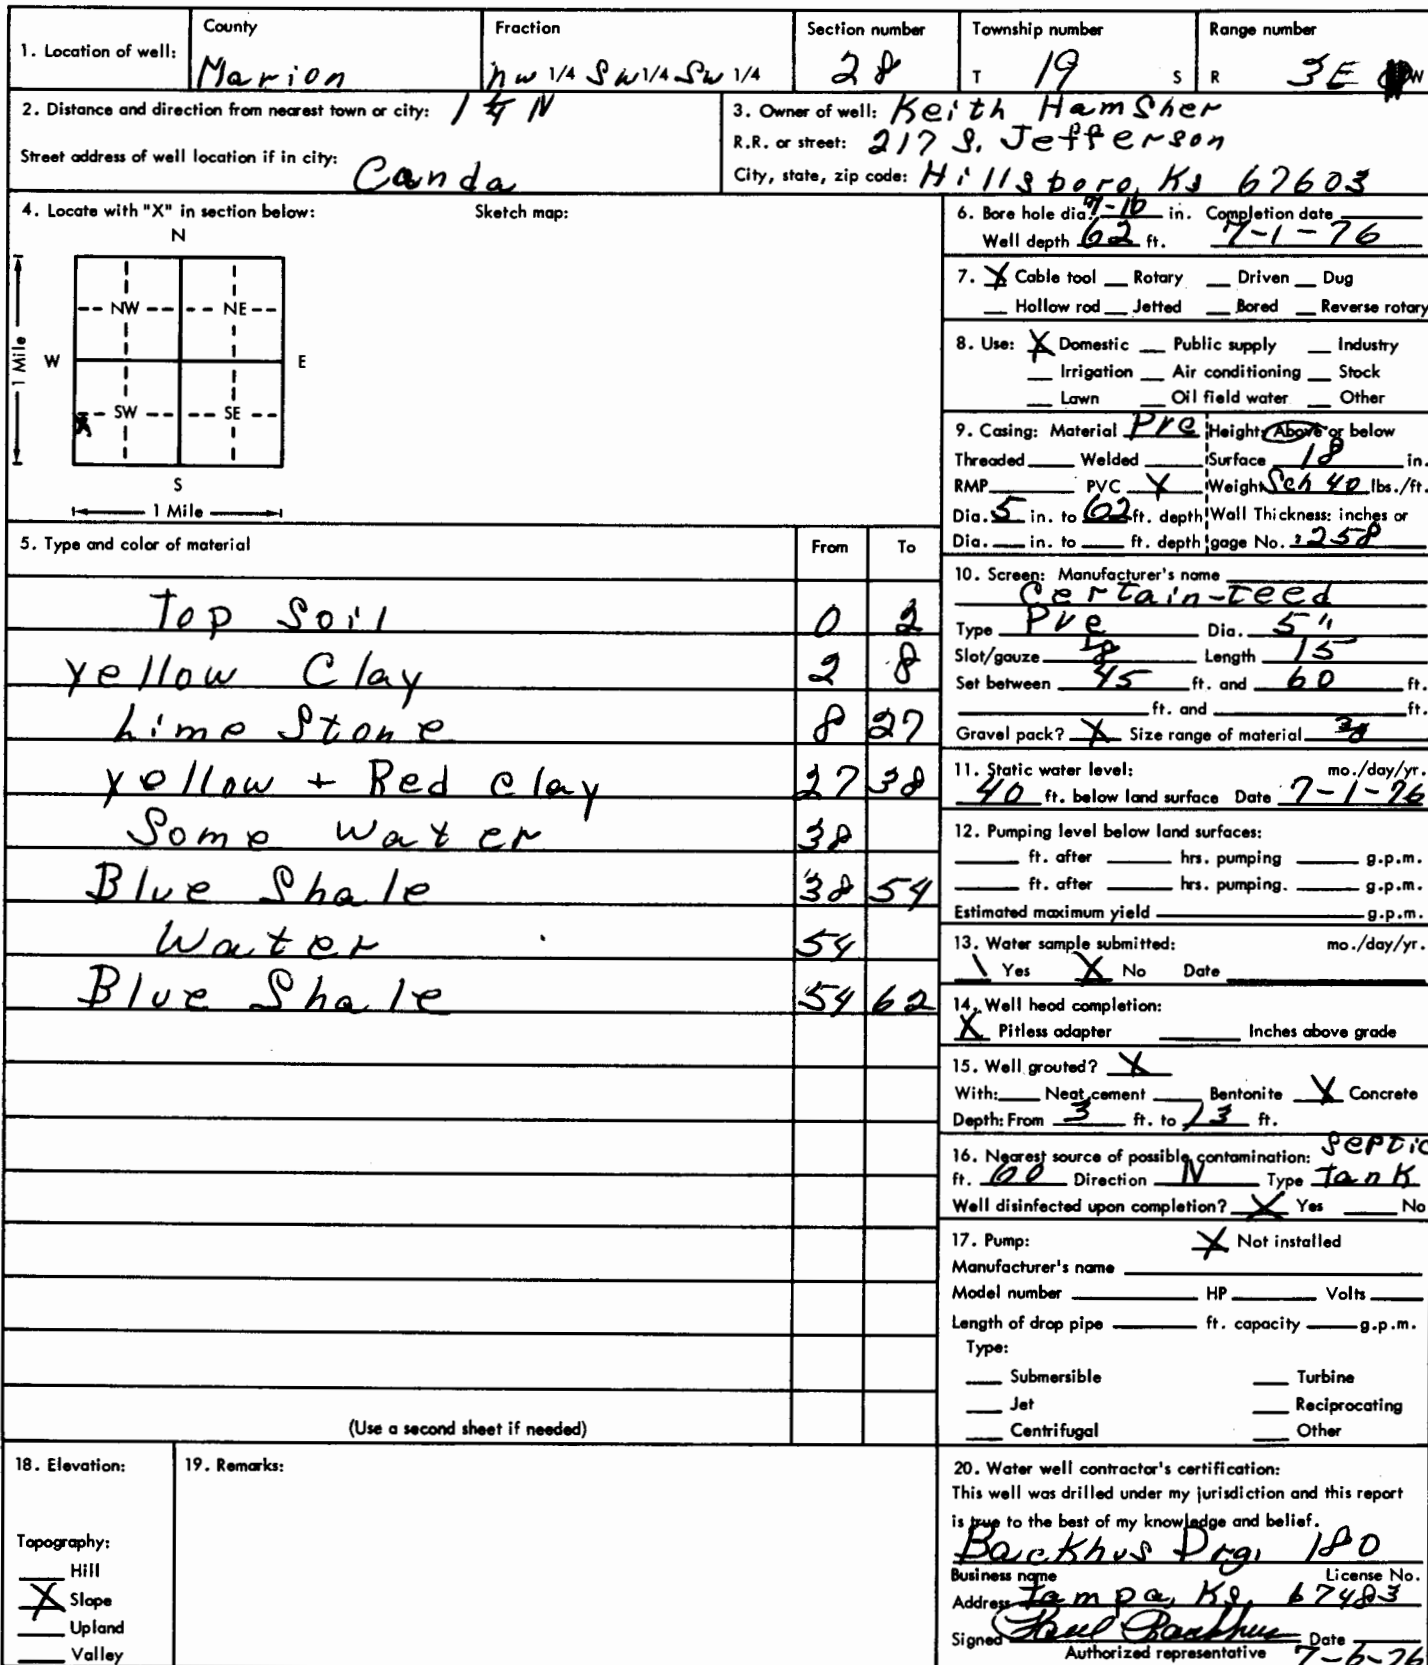 1. Location of well: County Marion Fraction nw 1/4 Sw 1/4 Sw 1/4 Section number 28 Township number T 19 S Range number R 3E W
2. Distance and direction from nearest town or city: 1 1/4 N
Street address of well location if in city: Canda
3. Owner of well: Keith Hamsher
R.R. or street: 217 S. Jefferson
City, state, zip code: Hillsboro, Ks 67603
4. Locate with "X" in section below: Sketch map:
N
NW NE
W E
1 Mile
X SW SE
S
1 Mile
5. Type and color of material From To
Top Soil 0 2
yellow Clay 2 8
Lime Stone 8 27
yellow + Red clay 27 38
Some water 38
Blue Shale 38 54
Water 54
Blue Shale 54 62
(Use a second sheet if needed)
6. Bore hole dia. 7-10 in. Completion date
Well depth 62 ft. 7-1-76
7. X Cable tool Rotary Driven Dug
Hollow rod Jetted Bored Reverse rotary
8. Use: X Domestic Public supply Industry
Irrigation Air conditioning Stock
Lawn Oil field water Other
9. Casing: Material PVC Height: Above or below
Threaded Welded Surface 18 in.
RMP PVC X Weight Sch 40 lbs./ft.
Dia. 5 in. to 62 ft. depth Wall Thickness: inches or
Dia. in. to ft. depth gage No. .258
10. Screen: Manufacturer's name
Certain-teed
Type PVC Dia. 5"
Slot/gauze Length 15
Set between 45 ft. and 60 ft.
ft. and ft.
Gravel pack? X Size range of material
11. Static water level: mo./day/yr.
40 ft. below land surface Date 7-1-76
12. Pumping level below land surfaces:
ft. after hrs. pumping g.p.m.
ft. after hrs. pumping. g.p.m.
Estimated maximum yield g.p.m.
13. Water sample submitted: mo./day/yr.
\ Yes X No Date
14. Well head completion:
X Pitless adapter Inches above grade
15. Well grouted? X
With: Neat cement Bentonite X Concrete
Depth: From 3 ft. to 13 ft.
16. Nearest source of possible contamination: Septic
ft. 60 Direction N Type Tank
Well disinfected upon completion? X Yes No
17. Pump: X Not installed
Manufacturer's name
Model number HP Volts
Length of drop pipe ft. capacity g.p.m.
Type:
Submersible Turbine
Jet Reciprocating
Centrifugal Other
18. Elevation:
Topography:
Hill
X Slope
Upland
Valley
19. Remarks:
20. Water well contractor's certification:
This well was drilled under my jurisdiction and this report
is true to the best of my knowledge and belief.
Backhus Drg. 180
Business name License No.
Address Tampa, Ks. 67483
Signed Paul Backhus Date
Authorized representative 7-6-76